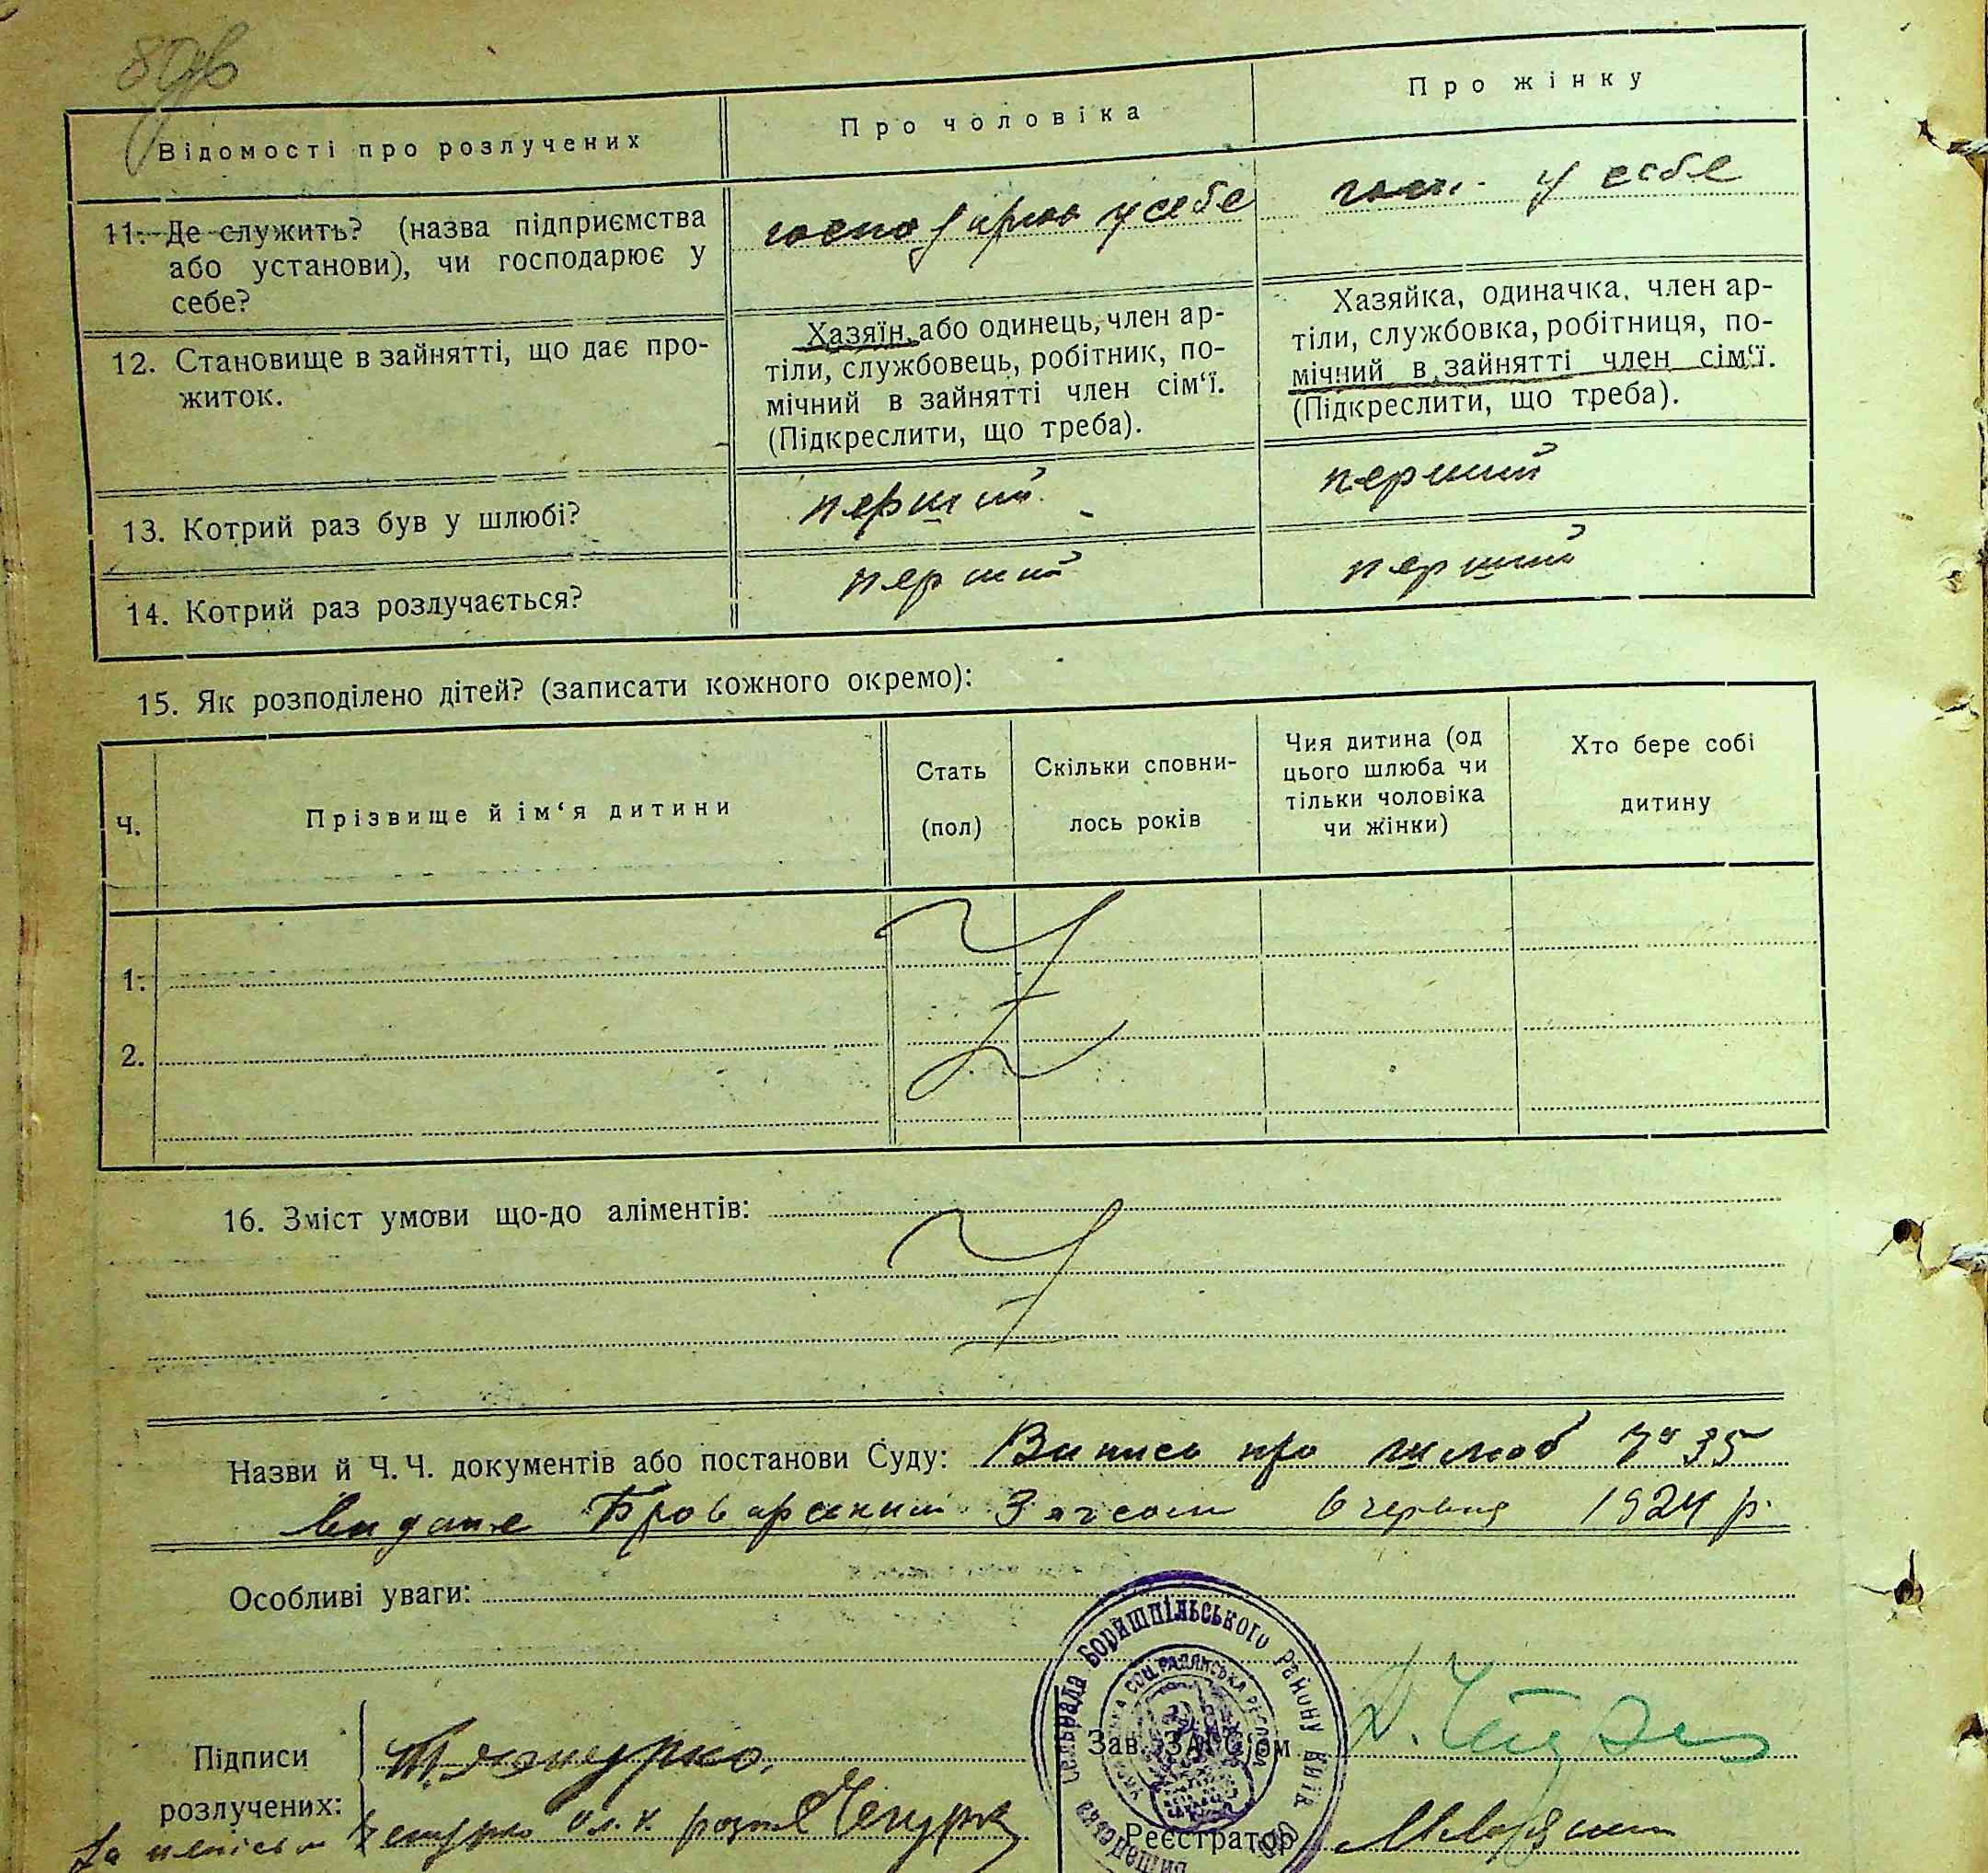 80
Відомості про розлучених
Про чоловіка
Про жінку
11. Де служить? (назва підприємства
або установи), чи господарює у
себе?
господарює у себе
госп. у себе
12. Становище в зайнятті, що дає про-
житок.
Хазяїн, або одинець, член ар-
тіли, службовець, робітник, по-
мічний в зайнятті член сім‘ї.
(Підкреслити, що треба).
Хазяйка, одиначка, член ар-
тіли, службовка, робітниця, по-
мічний в зайнятті член сім‘ї.
(Підкреслити, що треба).
13. Котрий раз був у шлюбі?
перший
перший
14. Котрий раз розлучається?
перший
перший
15. Як розподілено дітей? (записати кожного окремо):
Ч.
Прізвище й ім‘я дитини
Стать
(пол)
Скільки сповни-
лось років
Чия дитина (од
цього шлюба чи
тільки чоловіка
чи жінки)
Хто бере собі
дитину
1.
2.
16. Зміст умови що-до аліментів:
Назви й Ч.Ч. документів або постанови Суду: Випись про шлюб Ч 35
видане Броварським Загсом 6 червня 1924 р.
Особливі уваги:
Підписи
розлучених:
Зав. ЗАГС‘ом
Реєстратор
сельрада Боришпільського Району Київ
СОЦ. РАДЯНСЬКА